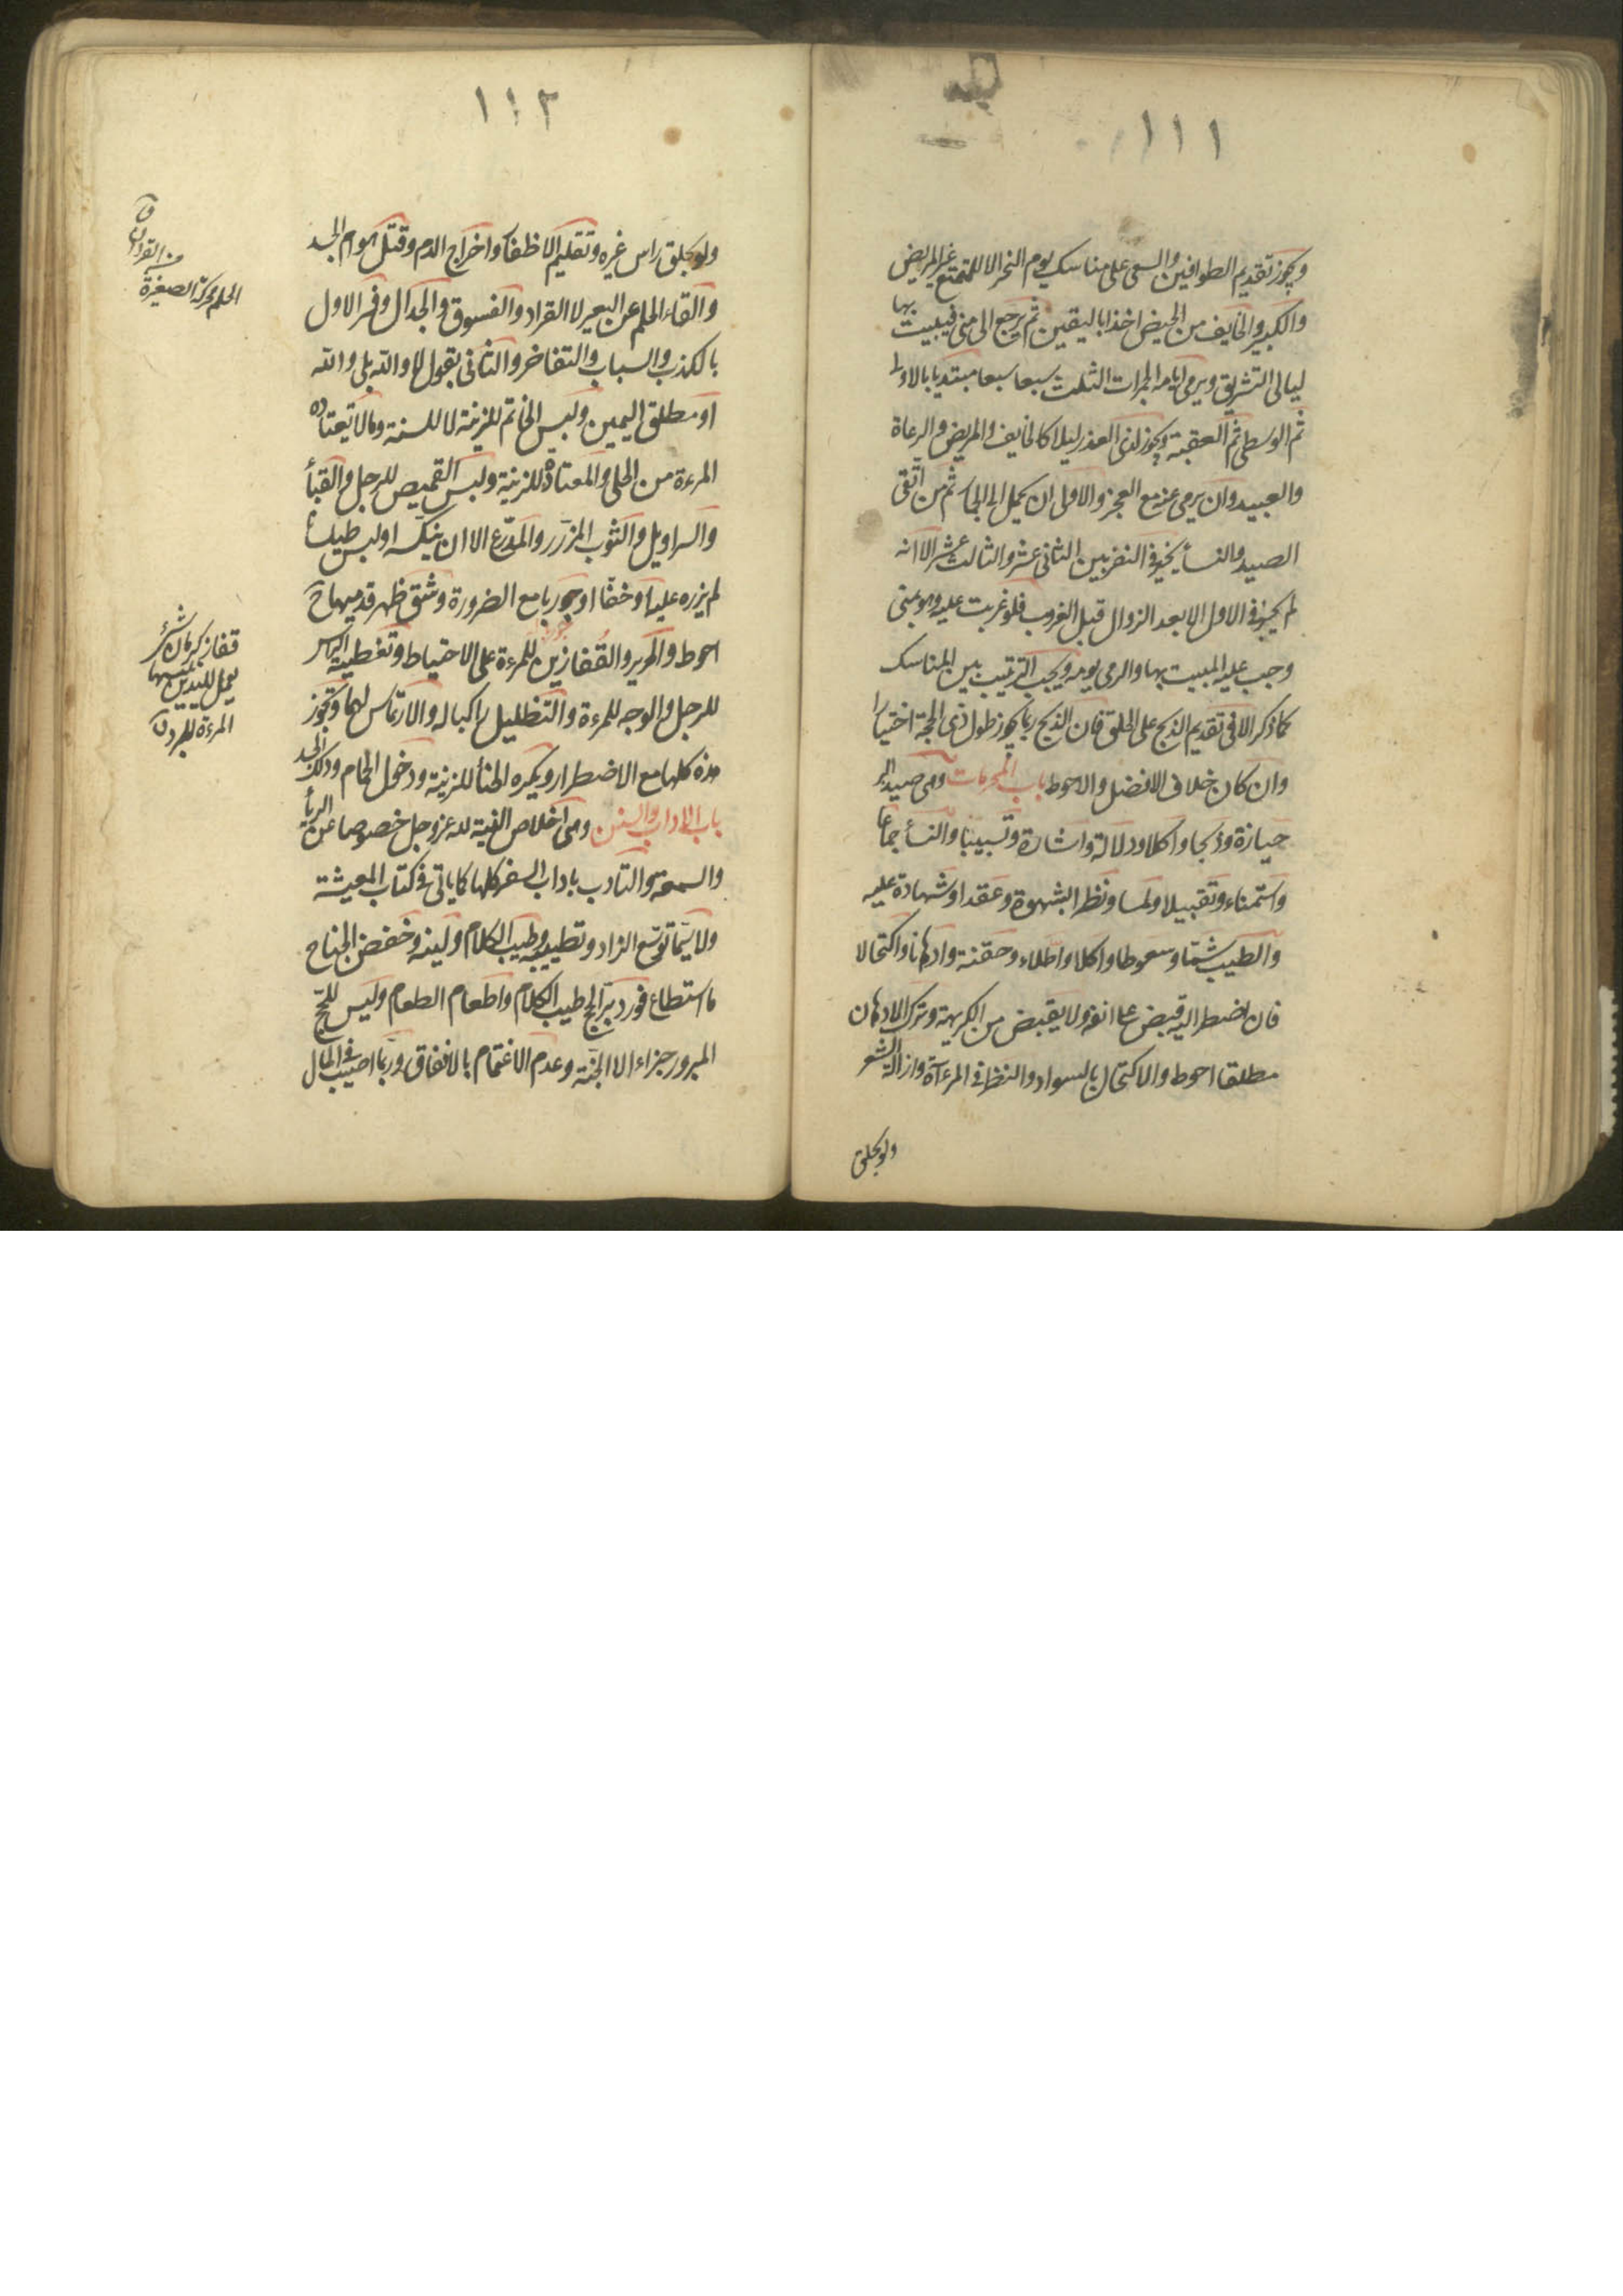 ١١١
ويجوز تقديم الطوافين والسعى على مناسك يوم النحر الا للمتمتع غير المريض
والكبير والخايف من الحيض اخذا باليقين ثم يرجع الى منى فيبيت بها
ليالى التشريق ويرمى ايامه الجمرات الثلث سبعا سبعا مبتديا بالاولى
ثم الوسطى ثم العقبة ويجوز لذى العذر ليلا كالخايف والمريض والرعاة
والعبيد وان يرمى عنه مع العجز والاولى ان يحمل الى الجمار ثم من اتقى
الصيد والنسأ يخير فى النفر بين الثانى عشر والثالث عشر الا انه
لم يجز فى الاول الا بعد الزوال قبل الغروب فلو غربت عليه وهو بمنى
وجب عليه المبيت بها والرمى يومه ويجب الترتيب بين المناسك
كما ذكر الا فى تقديم الذبح على الحلق فان الذبح ربما يجوز طول ذى الحجة اختيارا
وان كان خلاف الافضل والاحوط باب المحرمات وهى صيد البر
حيازة وذبحا واكلا ودلالة واشارة وتسبيبا والنسأ جماعا
واستمناء وتقبيلا ولمسا ونظرا بشهوة وعقدا وشهادة عليه
والطيب شمّا وسعوطا واكلا واطلاء وحقنة وادهانا واكتحالا
فان اضطر اليه قبض على انفه ولا يقبض من الكريهة وترك الادهان
مطلقا احوط والاكتحال بالسواد والنظر فى المرءآة وازالة الشعر
ولو بحلق
١١٢
ولو بحلق راس غيره وتقليم الاظفار واخراج الدم وقتل هوام الجسد
والقاء الحلم عن البعير لا القراد والفسوق والجدال وفسر الاول
بالكذب والسباب والتفاخر والثانى بقول لا والله بلى والله
او مطلق اليمين ولبس الخاتم للزينة لا للسنة وما لا تعتاده
المرءة من الحلى والمعتادة للزينة ولبس القميص للرجل والقبأ
والسراويل والثوب المزرّر والمدرّع الا ان ينكسه او لبس طيلسا
لم يزره عليه او خفّا او جوربا مع الضرورة وشق ظهر قدميهما ح
احوط والحرير والقُفازين للمرءة على الاحتياط وتغطية الراس
للرجل والوجه للمرءة والتظليل راكبا له والارتماس لهما وتجوز
هذه كلها مع الاضطرار ويكره الحنأ للزينة ودخول الحمام ودلك الجسد
باب الاداب والسنن وهى اخلاص النية لله عز وجل خصوصا عن الريأ
والسمعة والتادب باداب السفر كلها كما ياتى فى كتاب المعيشة
ولا سيّما توسّع الزاد وتطييبه وطيب الكلام ولينه وخفض الجناح
ما استطاع فورد برّ الحج طيب الكلام واطعام الطعام وليس للحج
المبرور جزاء الا الجنة وعدم الاغتمام بالانفاق وربما اصيب فى المال
الحلم محركة الصغيرة
من القردان
ق
قفاز كرمان شئ
يعمل لليدين تلبسهما
المرءة للبرد ن